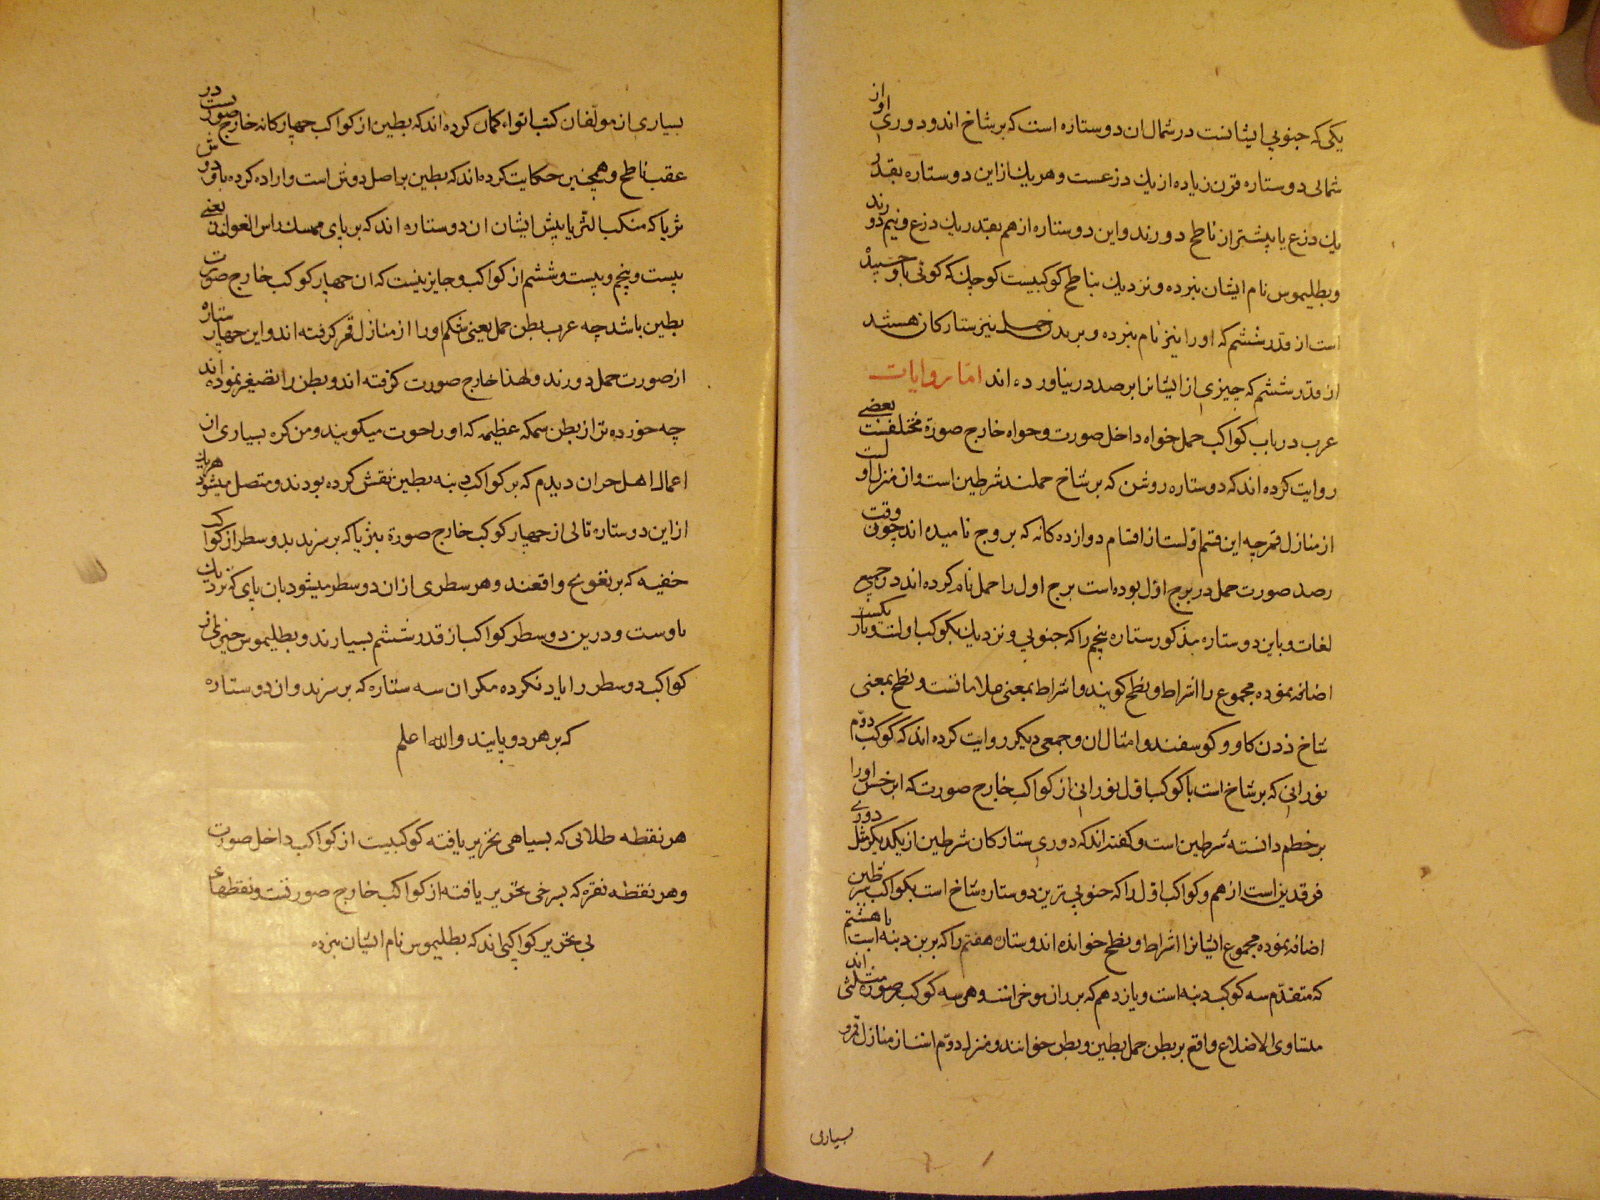 یکی که جنوبی ایشانست در شمال ان دو ستاره است که بر شاخ اند و دوری او از
شمالی دو ستاره قرن زیاده از یک ذرعست و هر یک از این دو ستاره بقدر
یک ذرع یا بیشتر از ناطح دورند و این دو ستاره از هم بقدر یک ذرع و نیم دورند
و بطلیموس نام ایشان نبرده و نزدیک بناطح کوکبیست کوچک که کوئی باو چسبیده
است از قدر ششم که او را نیز نام نبرده و بر بدن حمل نیز ستارکان هستند
از قدر ششم که چیزی از ایشانرا برصد در نیاورده اند اما روایات
عرب در باب کواکب حمل خواه داخل صورت و خواه خارج صورة مختلفست بعضی
روایت کرده اند که دو ستاره روشن که بر شاخ حملند شرطین است و ان منزل اولست
از منازل قمر چه این قسم اولست از اقسام دوازده کانه که بروج نامیده اند چون وقت
رصد صورت حمل در برج اول بوده است برج اول را حمل نام کرده اند در جمیع
لغات و باین دو ستاره مذکور ستاره پنجم را که جنوبی و نزدیک بکوکب اولست و تاریکست
اضافه نموده مجموع را اشراط و نطح کویند و اشراط بمعنی علاماتست و نطح بمعنی
شاخ زدن کاو و کوسفند و امثال ان و جمعی دیکر روایت کرده اند که کوکب دوم
نورانی که بر شاخ است با کوکب اول نورانی از کواکب خارج صورت که ابرخس او را
بر خطم دانسته شرطین است و کفته اند که دوری ستارکان شرطین از یکدیکر مثل دوری
فرقدین است از هم و کواکب اول را که جنوبی ترین دو ستاره شاخ است بکواکب شرطین
اضافه نموده مجموع ایشانرا اشراط و نطح خوانده اند و ستاره هفتم را که بر بن دنبه است با هشتم
که متقدم سه کوکب دنبه است و یازدهم که بر ران موخر است و هر سه کوکب بر صورة مثلثی اند
متساوی الاضلاع واقع بر بطن حمل بطین و بطن خوانند و منزل دوم است از منازل قمر و
بسیاری
بسیاری از مولفان کتب انواء کمان کرده اند که بطین از کواکب چهارکانه خارج صورتست در
عقب ناطح و همچنین حکایت کرده اند که بطین بر اصل دوش است و اراده کرده باو دوش
ثریا که منکب الثریا پیش ایشان ان دو ستاره اند که بر پای ممسک راس الغول اند یعنی
بیست و پنجم و بیست و ششم از کواکب و جایز نیست که ان چهار کوکب خارج صورت
بطین باشد چه عرب بطن حمل یعنی شکم او را از منازل قمر کرفته اند و این چهار ستاره
از صورت حمل دورند و لهذا خارج صورت کرفته اند و بطن را تصغیر نموده اند
چه خورده تر از بطن سمکه عظیمه که او را حوت میکویند و من کره بسیاری از
اعمال اهل حران دیدم که بر کواکب دنبه بطین نقش کرده بودند و متصل میشود هر یک
از این دو ستاره تالی از چهار کوکب خارج صورة بثریا که بر سرند بدو سطر از کواکب
خفیه که بر تقویم واقعند و هر سطری ازان دو سطر میشود بان پای که نزدیک
باوست و درین دو سطر کواکب از قدر ششم بسیارند و بطلیموس چیزی از
کواکب دو سطر را یاد نکرده مکر ان سه ستاره که بر سرند و ان دو ستاره
که بر هر دو پایند والله اعلم
هر نقطه طلائی که بسیاهی تحریر یافته کوکبیست از کواکب داخل صورت
و هر نقطه نقره که بسرخی تحریر یافته از کواکب خارج صورتست و نقطهای
بی تحریر کواکبی اند که بطلیموس نام ایشان نبرده